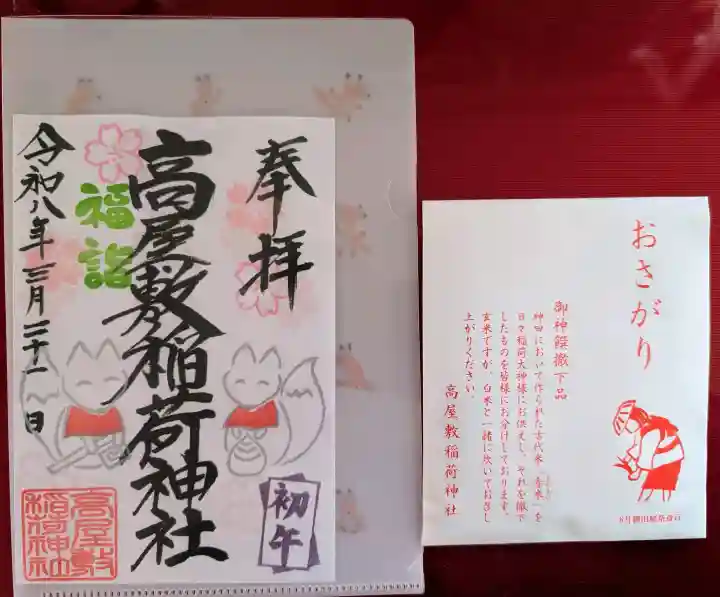 奉拝
高屋敷稲荷神社
福詣
令和八年三月二十一日
初午
高屋敷
稲荷神社
おさがり
御神饌撤下品
神田において作られた古代米「香米」を
日々稲荷大神様にお供えし、それを撤下
したものを皆様にお分けしております。
玄米ですが、白米と一緒に炊いてお召し
上がりください。
高屋敷稲荷神社